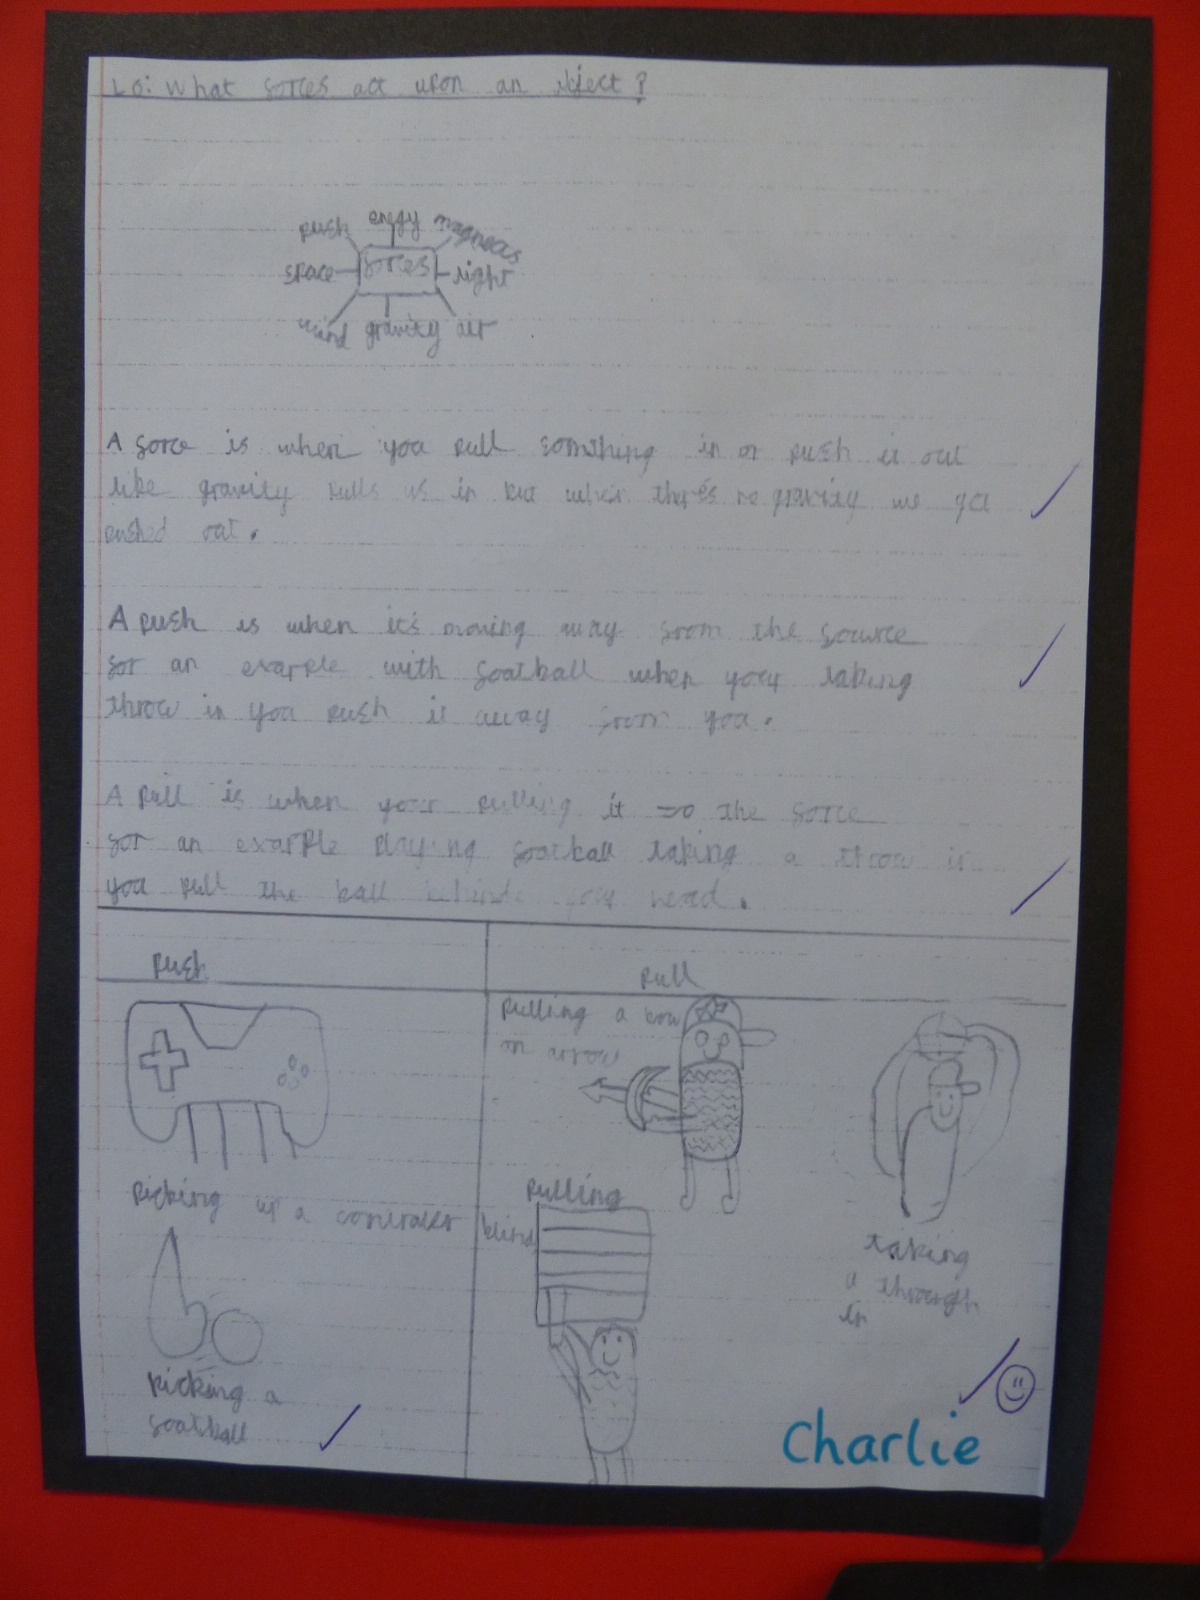 LO: What forces act upon an object?
push enrgy magneats
space forces light
wind gravity air
A force is when you pull somthing in or push it out
like gravity pulls us in but when there's no gravity we get
pushed out.
A push is when it's moving away from the source
for an example with football when your taking
throw in you push it away from you.
A pull is when your pulling it to the force
for an example playing football taking a throw in
you pull the ball behinde your head.
Push
Pull
Pulling a bow
an arrow
Picking up a controller
Pulling
blind
taking
a through
in
kicking a
football
Charlie